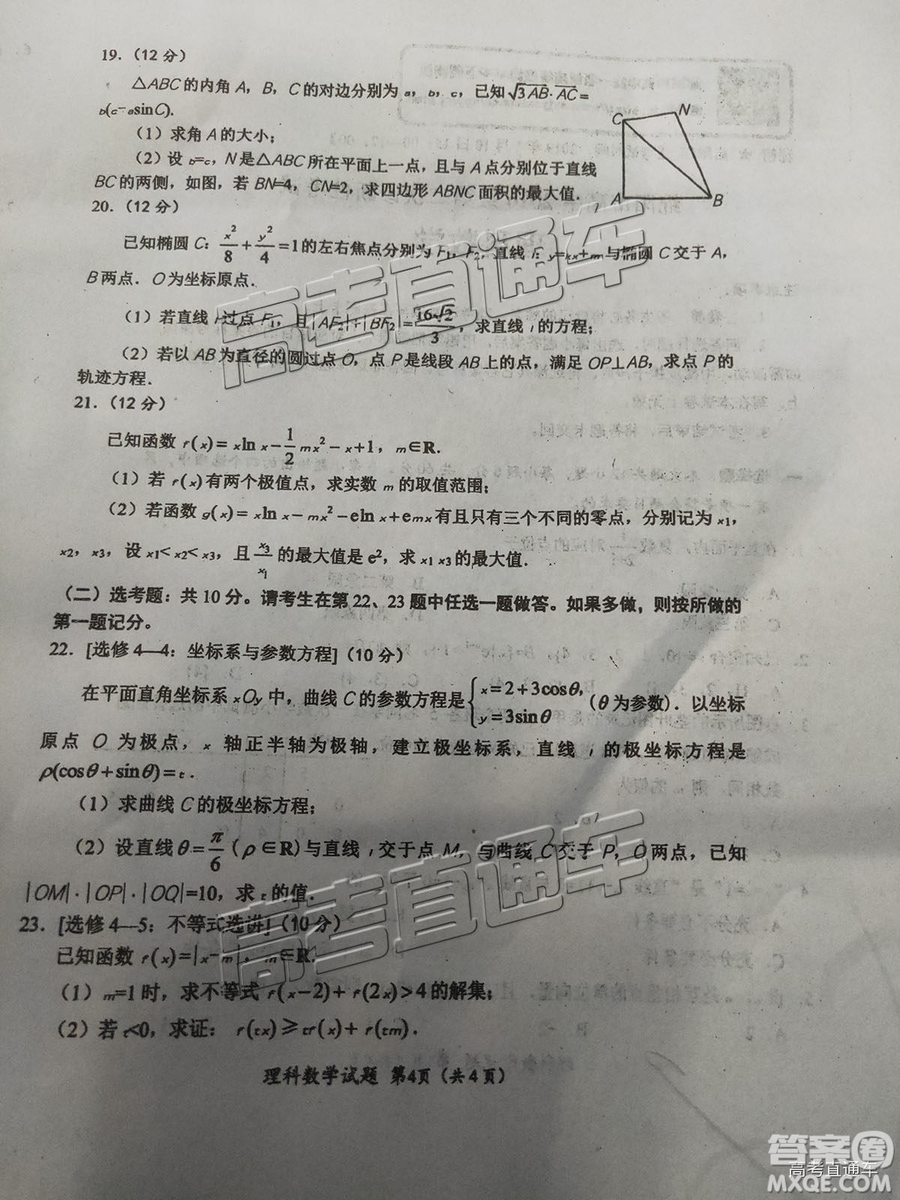 19.（12 分）
△ABC 的内角 A，B，C 的对边分别为 a，b，c，已知 √3 AB·AC =
b(c-asinC).
（1）求角 A 的大小；
（2）设 b=c，N 是△ABC 所在平面上一点，且与 A 点分别位于直线
BC 的两侧，如图，若 BN=4，CN=2，求四边形 ABNC 面积的最大值.
C N
A B
20.（12 分）
已知椭圆 C：x²/8 + y²/4 =1 的左右焦点分别为 F₁，F₂，直线 l：y=kx+m 与椭圆 C 交于 A，
B 两点. O 为坐标原点.
（1）若直线 l 过点 F₁，且|AF₂|+|BF₂|=16√2/3，求直线 l 的方程；
（2）若以 AB 为直径的圆过点 O，点 P 是线段 AB 上的点，满足 OP⊥AB，求点 P 的
轨迹方程.
21.（12 分）
已知函数 f(x)=xln x-1/2 mx²-x+1，m∈R.
（1）若 f(x)有两个极值点，求实数 m 的取值范围；
（2）若函数 g(x)=xln x-mx²-eln x+emx 有且只有三个不同的零点，分别记为 x₁，
x₂，x₃，设 x₁<x₂<x₃，且 x₃/x₁ 的最大值是 e²，求 x₁x₃的最大值.
（二）选考题：共 10 分。请考生在第 22、23 题中任选一题做答。如果多做，则按所做的
第一题记分。
22. [选修 4—4：坐标系与参数方程]（10 分）
在平面直角坐标系 xOy 中，曲线 C 的参数方程是{x=2+3cosθ, y=3sinθ （θ为参数）. 以坐标
原点 O 为极点，x 轴正半轴为极轴，建立极坐标系，直线 l 的极坐标方程是
ρ(cosθ+sinθ)=t.
（1）求曲线 C 的极坐标方程；
（2）设直线θ=π/6（ρ∈R）与直线 l 交于点 M，与曲线 C 交于 P，Q 两点，已知
|OM|·|OP|·|OQ|=10，求 t 的值.
23. [选修 4—5：不等式选讲]（10 分）
已知函数 f(x)=|x-m|，m∈R.
（1）m=1 时，求不等式 f(x-2)+f(2x)>4 的解集；
（2）若 t<0，求证：f(tx)≥tf(x)+f(tm).
理科数学试题 第4页（共 4 页）
高考直通车
高考直通车
答案圈
高考直通车
MXQE.COM